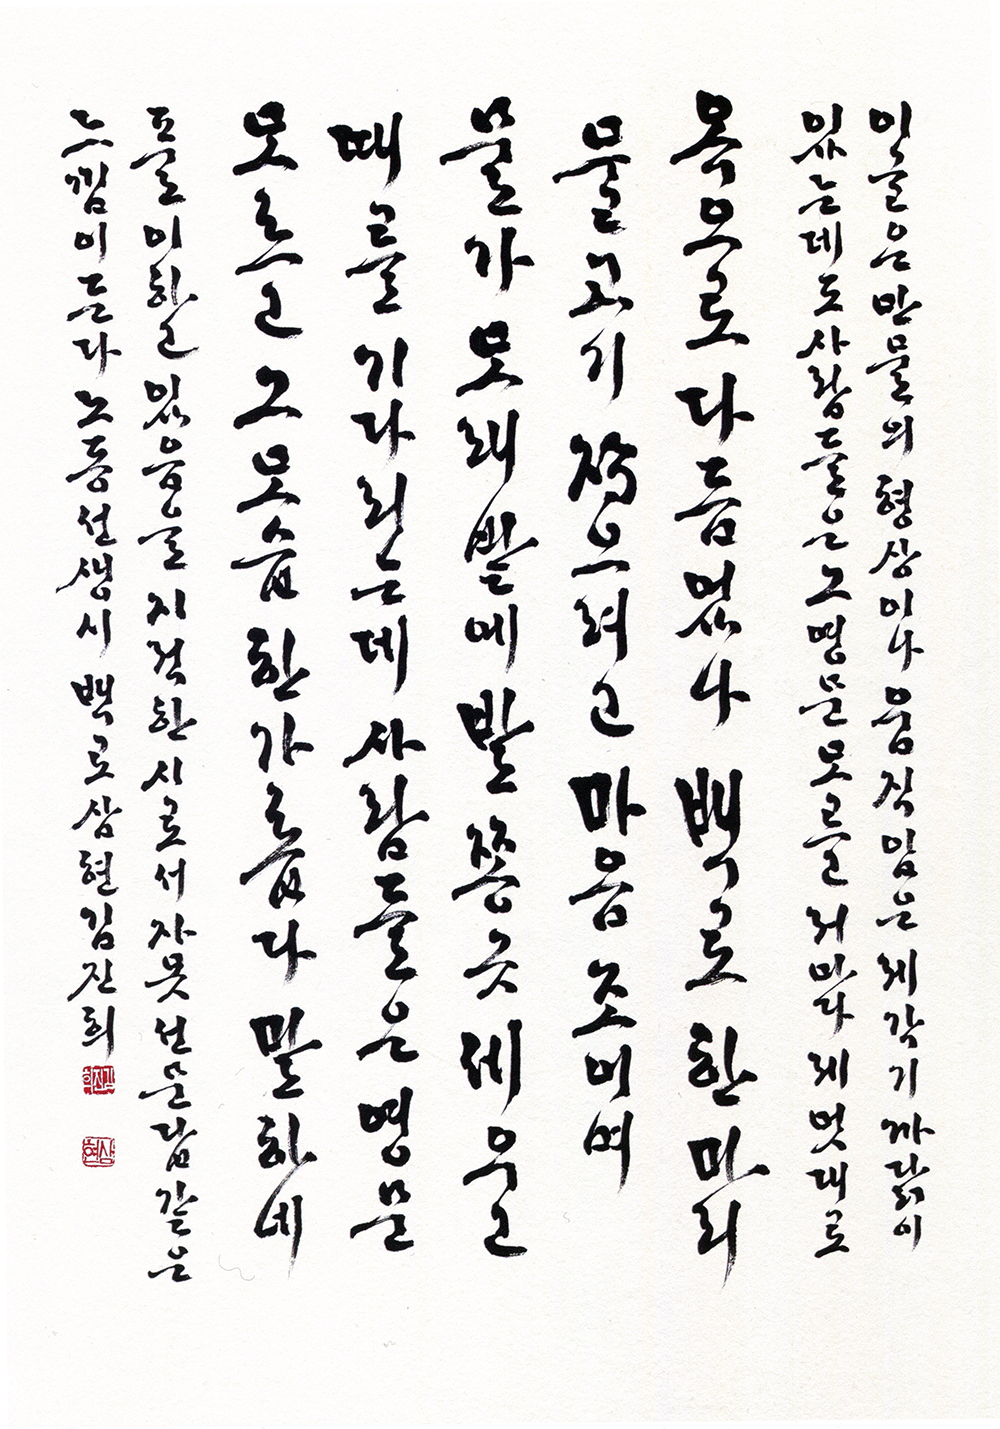 이글은만물의형상이나 움직임은 제각기까닭이
있는데도사람들은그영문모르고 저마다제멋대로
옥으로 다듬었나 백로 한마리
물고기 잡으려고 마음 조이며
물가 모래밭에 발쫑긋 세우고
때를 기다리는데 사람들은 영문
모르고 그모습 한가롭다 말하네
풀이하고 있음을 지적한시로서 자못 선문답같은
느낌이든다 선생시 백로 삼현김진희
김진희
삼현